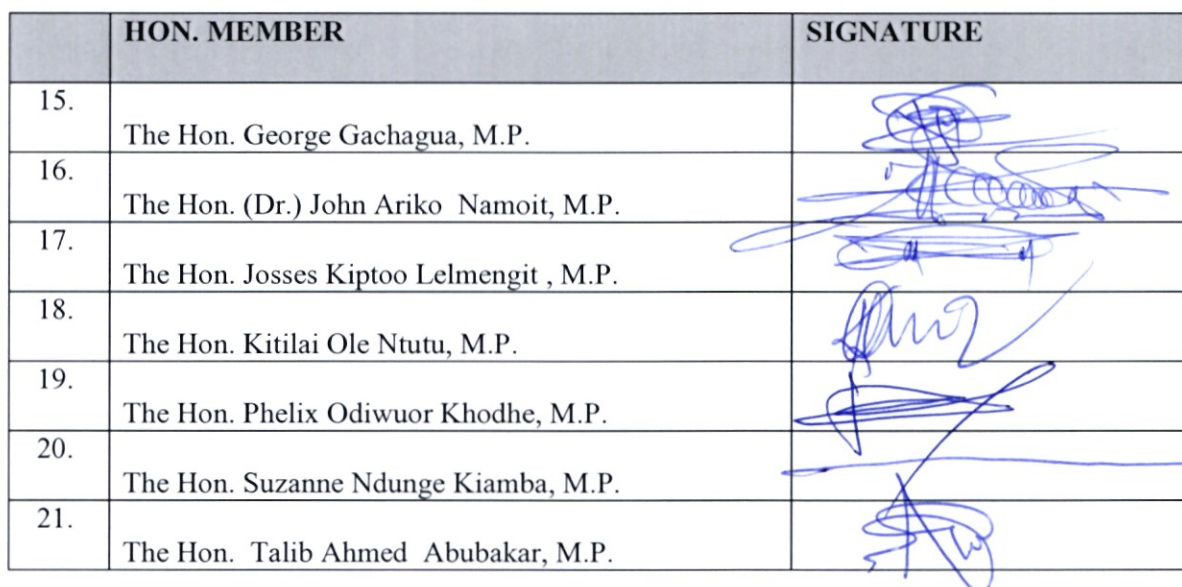 HON. MEMBER SIGNATURE
15.
The Hon. George Gachagua, M.P.
16.
The Hon. (Dr.) John Ariko Namoit, M.P.
17.
The Hon. Josses Kiptoo Lelmengit , M.P.
18.
The Hon. Kitilai Ole Ntutu, M.P.
19.
The Hon. Phelix Odiwuor Khodhe, M.P.
20.
The Hon. Suzanne Ndunge Kiamba, M.P.
21.
The Hon. Talib Ahmed Abubakar, M.P.